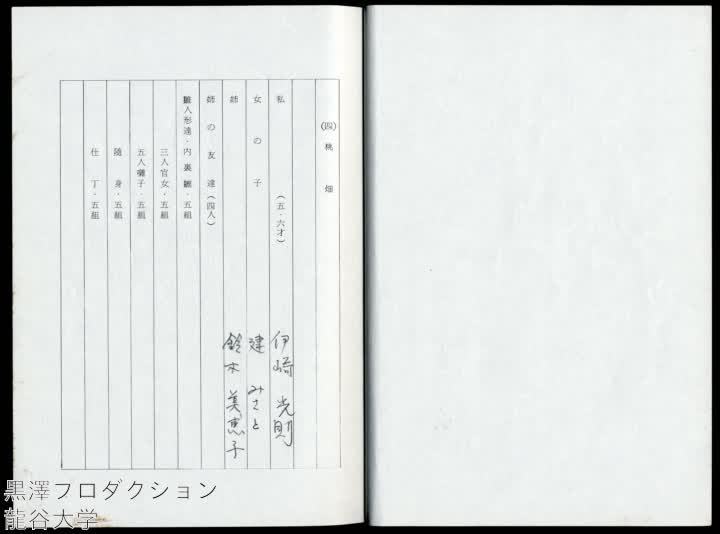 (四)桃畑
私 (五・六才) 伊崎 光則
女の子 建 みさと
姉 鈴木 美恵子
姉の友達(四人)
雛人形達・内裏雛・五組
三人官女・五組
五人囃子・五組
随身・五組
仕丁・五組
黒澤プロダクション
龍谷大学